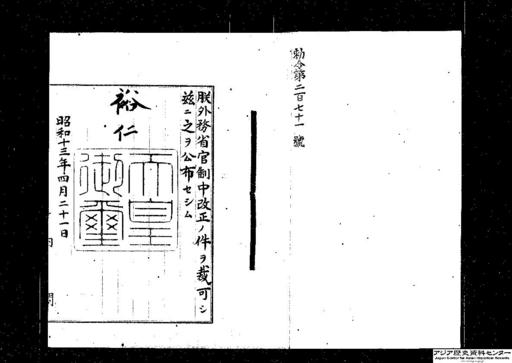 勅令第二百七十一號
朕外務省官制中改正ノ件ヲ裁可シ
玆ニ之ヲ公布セシム
裕仁
天皇
御璽
昭和十三年四月二十一日
内閣
アジア歴史資料センター
Japan Center for Asian Historical Records